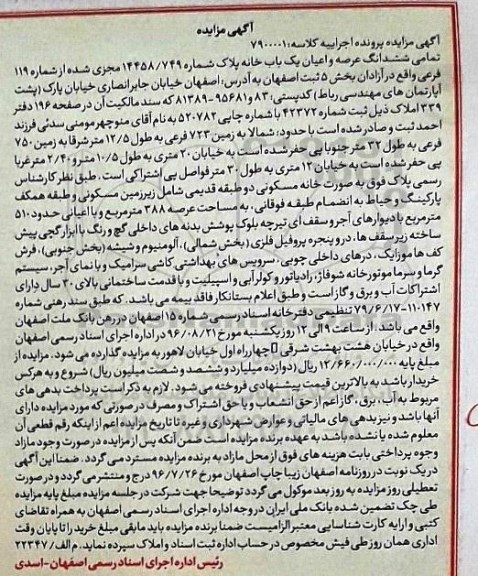 آگهی مزایده
آگهی مزایده پرونده اجراییه کلاسه: ۷۹۰۰۰۰۱
تمامی ششدانگ عرصه و اعیان یک باب خانه پلاک شماره ۱۴۴۵۸/۷۴۹ مجزی شده از شماره ۱۱۹
فرعی واقع در آزادان بخش ۵ ثبت اصفهان به آدرس: اصفهان خیابان جابر انصاری خیابان پارک (پشت
آپارتمان های مهندسی رباط) کدپستی: ۸۳ و ۹۵۶۸۱-۸۱۳۸۹ که سند مالکیت آن در صفحه ۱۹۶ دفتر
۳۳۹ املاک ذیل ثبت شماره ۴۲۳۷۲ با شماره چاپی ۵۲۰۷۸۲ به نام آقای منوچهر مومنی سدئی فرزند
احمد ثبت و صادر شده است با حدود: شمالا به زمین ۷۲۳ فرعی به طول ۱۲/۵ متر شرقا به زمین ۷۵۰
فرعی به طول ۳۲ متر جنوبا پی حفر شده است به خیابان ۲۰ متری به طول ۱۰/۵ متر و ۲/۴۰ متر غربا
پی حفر شده است به خیابان ۱۲ متری به طول ۳۰ متر فواصل پی اشتراکی است. طبق نظر کارشناس
رسمی پلاک فوق به صورت خانه مسکونی دو طبقه قدیمی شامل زیرزمین مسکونی و طبقه همکف
پارکینگ و حیاط به انضمام طبقه فوقانی، به مساحت عرصه ۳۸۸ مترمربع و با اعیانی حدود ۵۱۰
مترمربع با دیوارهای آجر و سقف آی تیرچه بلوک پوشش بدنه های داخلی گچ و رنگ با ابزار گچی پیش
ساخته زیر سقف ها، در و پنجره پروفیل فلزی (بخش شمالی)، آلومنیوم و شیشه (بخش جنوبی)، فرش
کف ها موزائیک، درهای داخلی چوبی، سرویس های بهداشتی کاشی سرامیک و با نمای آجر، سیستم
گرما و سرما موتورخانه شوفاژ، رادیاتور و کولر آبی و اسپیلیت و با قدمت ساختمانی بالای ۳۰ سال دارای
اشتراکات آب و برق و گاز است و طبق اعلام بستانکار فاقد بیمه می باشد. که طبق سند رهنی شماره
۱۱۰۱۴۷-۷۹/۶/۱۷ تنظیمی دفترخانه اسناد رسمی شماره ۱۵ اصفهان در رهن بانک ملت اصفهان
واقع می باشد. از ساعت ۹ الی ۱۲ روز یکشنبه مورخ ۹۶/۰۸/۲۱ در اداره اجرای اسناد رسمی اصفهان
واقع در خیابان هشت بهشت شرقی چهارراه اول خیابان لاهور به مزایده گذارده می شود. مزایده از
مبلغ پایه ۱۲/۶۶۰/۰۰۰/۰۰۰ ریال (دوازده میلیارد و ششصد و شصت میلیون ریال) شروع و به هرکس
خریدار باشد به بالاترین قیمت پیشنهادی فروخته می شود. لازم به ذکر است پرداخت بدهی های
مربوط به آب، برق، گاز اعم از حق انشعاب و یا حق اشتراک و مصرف در صورتی که مورد مزایده دارای
آنها باشد و نیز بدهی های مالیاتی و عوارض شهرداری و غیره تا تاریخ مزایده اعم از اینکه رقم قطعی آن
معلوم شده یا نشده باشد به عهده برنده مزایده است ضمن آنکه پس از مزایده در صورت وجود مازاد
وجوه پرداختی بابت هزینه های فوق از محل مازاد به برنده مزایده مسترد می گردد. ضمنا این آگهی
در یک نوبت در روزنامه اصفهان زیبا چاپ اصفهان مورخ ۹۶/۷/۲۶ درج و منتشر می گردد و در صورت
تعطیلی روز مزایده به روز بعد موکول می گردد توضیحا جهت شرکت در جلسه مزایده مبلغ پایه مزایده
طی چک تضمین شده بانک ملی ایران در وجه اداره اجرای اسناد رسمی اصفهان به همراه تقاضای
کتبی و ارایه کارت شناسایی معتبر الزامیست ضمنا برنده مزایده باید مابقی مبلغ خرید را تا پایان وقت
اداری همان روز طی فیش مخصوص در حساب اداره ثبت اسناد و املاک سپرده نماید. م الف/ ۲۲۳۴۷
رئیس اداره اجرای اسناد رسمی اصفهان-اسدی